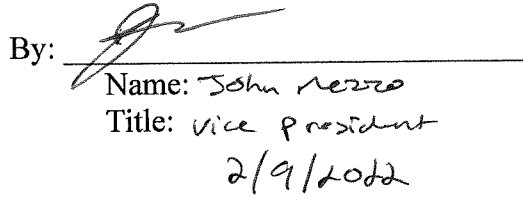 By:
Name: John Mezzo
Title: Vice President
2/9/2022